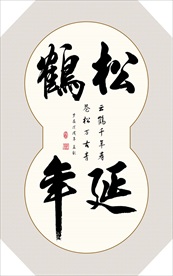 松鶴
延年
云鶴千年壽
蒼松万古青